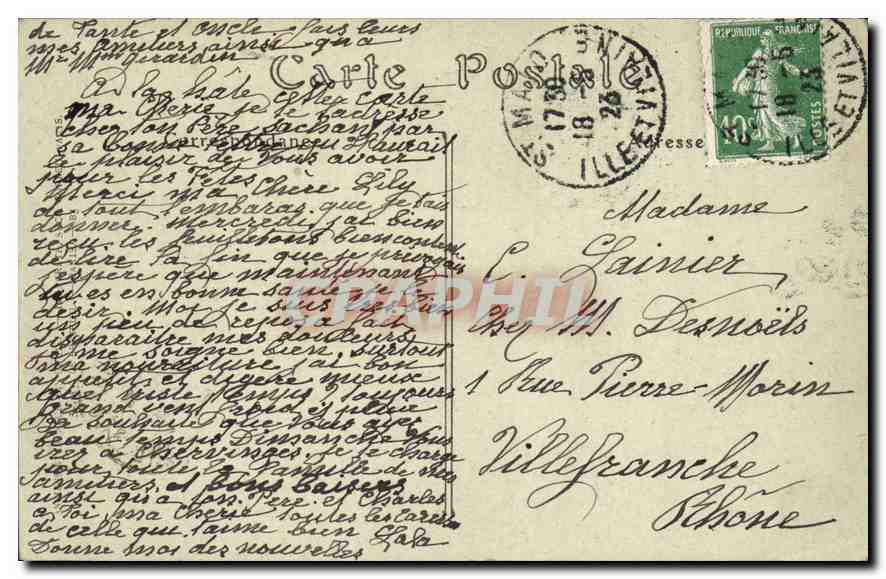 de Tante et oncle fais leurs
mes amitiers ainsi qu'a
Mr Mme Girardin
Carte Postale
Correspondance
Adresse
A la hâte cettes carte
ma Cherie je te l'adresse
chez ton Père sachant par
sa bonne que tu aurait
le plaisir de vous avoir
pour les Fêtes
Merci ma Chère Lily
de tout l'embaras que je tai
donner. Mercredi j'ai bien
reçu les feuilletons bien contente
de lire la fin que je prevoyais
j'espere que maintenant
tu es en bonne santé je le
desir. Moi je suis tres bien
un peu de repos a fait
disparaitre mes douleurs
je me soigne bien surtout
ma nourriture j'ai bon
appetit et digere mieux
quel triste temps toujours
Grand vent froid et pluie
Je souhaite que vous ayez
beau temps Dimanche vous
irez a Chervinges je te charge
pour toute la famille de mes
amitiers et bons baisers
ainsi qu'a ton Pere et Charles
a Toi ma cherie toutes les caresses
de celle qui t'aime bien Lala
Donne moi des nouvelles
ST MALO
17 30
18 - 5
23
ILLE ET VILAINE
REPUBLIQUE FRANÇAISE
10c
POSTES
17 30
18 - 5
23
ILLE ET VILA
Madame
C. Lainier
chez M. Desnoëls
1 Rue Pierre-Morin
Villefranche
Rhône
CPAPHIL